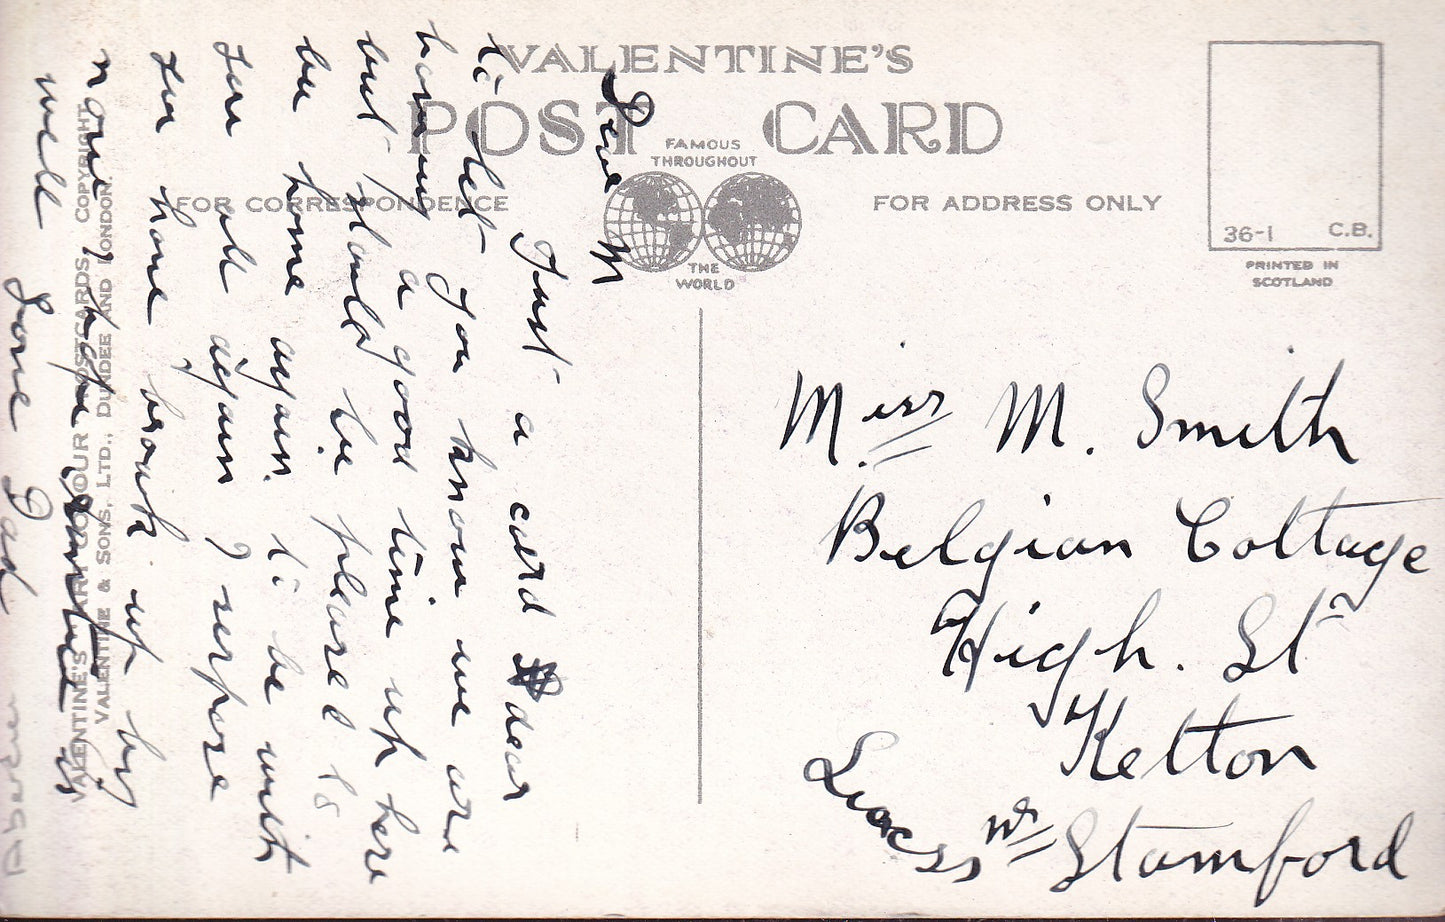 VALENTINE'S
POST CARD
FAMOUS
THROUGHOUT
THE
WORLD
FOR CORRESPONDENCE
FOR ADDRESS ONLY
36-1 C.B.
PRINTED IN
SCOTLAND
Dear M
Just a card dear
to let you know we are
having a good time up here
but should be pleased to
be home again to be with
you all again I suppose
you have brook up by
now, hope is
well Love Dad
VALENTINE'S ART COLOUR POSTCARDS. COPYRIGHT
VALENTINE & SONS, LTD., DUNDEE AND LONDON
Miss M. Smith
Belgian Cottage
High. St
Ketton
Nr Stamford